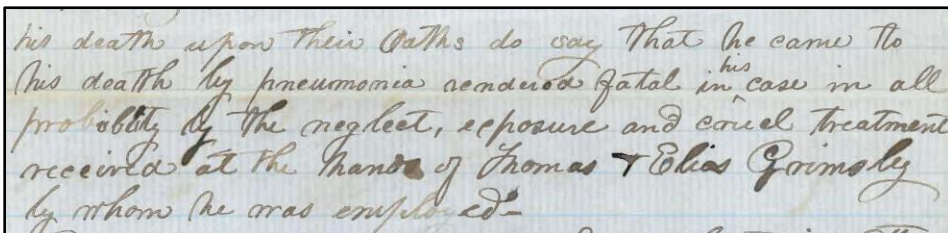 his death upon their Oaths do say that he came to
his death by pneumonia rendered fatal in his case in all
probiblity by the neglect, exposure and cruel treatment
received at the hands of Thomas & Elias Grimsley
by whom he was employed-